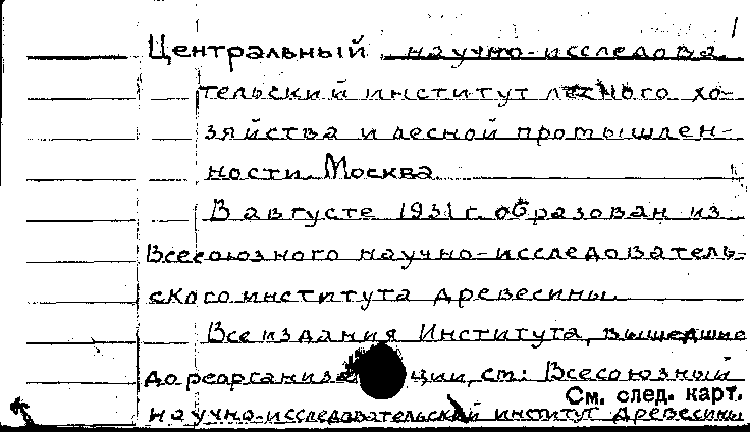 1
Центральный научно-исследова-
тельский институт лесного хо-
зяйства и лесной промышлен-
ности. Москва
В августе 1931 г. образован из
Всесоюзного научно-исследователь-
ского института древесины.
Все издания Института, вышедшие
до реорганиза ции, см: Всесоюзный
См. след. карт.
научно-исследовательский институт древесины